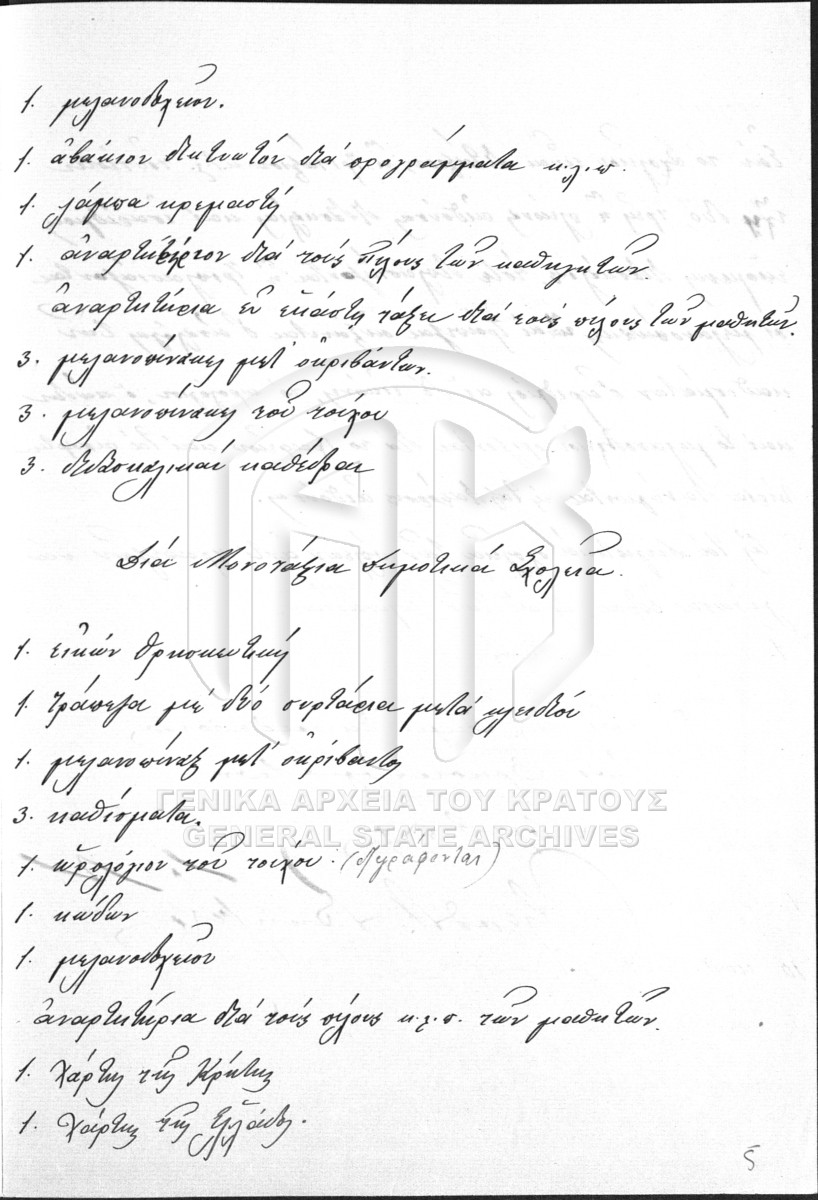 1. μελανοδοχεῖον.
1. ἀβάκιον δικτυωτόν διά προγράμματα κ.λ.π.
1. λάμπα κρεμαστή
1. ἀναρτητήριον διά τούς πίλους τῶν καθηγητῶν.
ἀναρτητήρια ἐν ἑκάστῃ τάξει διά τούς πίλους τῶν μαθητῶν.
3. μελανοπίνακες μετ' ὀκριβάντων.
3. μελανοπίνακες τοῦ τοίχου
3. διδασκαλικαί καθέδραι
Διά Μονοτάξια Δημοτικά Σχολεῖα.
1. εἰκών θρησκευτική
1. τράπεζα μέ δύο συρτάρια μετά κλειδιοῦ
1. μελανοπίναξ μετ' ὀκρίβαντος
3. καθίσματα.
1. ὡρολόγιον τοῦ τοίχου. (διγράφονται)
1. κώδων
1. μελανοδοχεῖον
ἀναρτητήρια διά τούς πίλους κ.λ.π. τῶν μαθητῶν.
1. χάρτης τῆς Κρήτης
1. χάρτης τῆς Ἑλλάδος.
5
ΓΕΝΙΚΑ ΑΡΧΕΙΑ ΤΟΥ ΚΡΑΤΟΥΣ
GENERAL STATE ARCHIVES